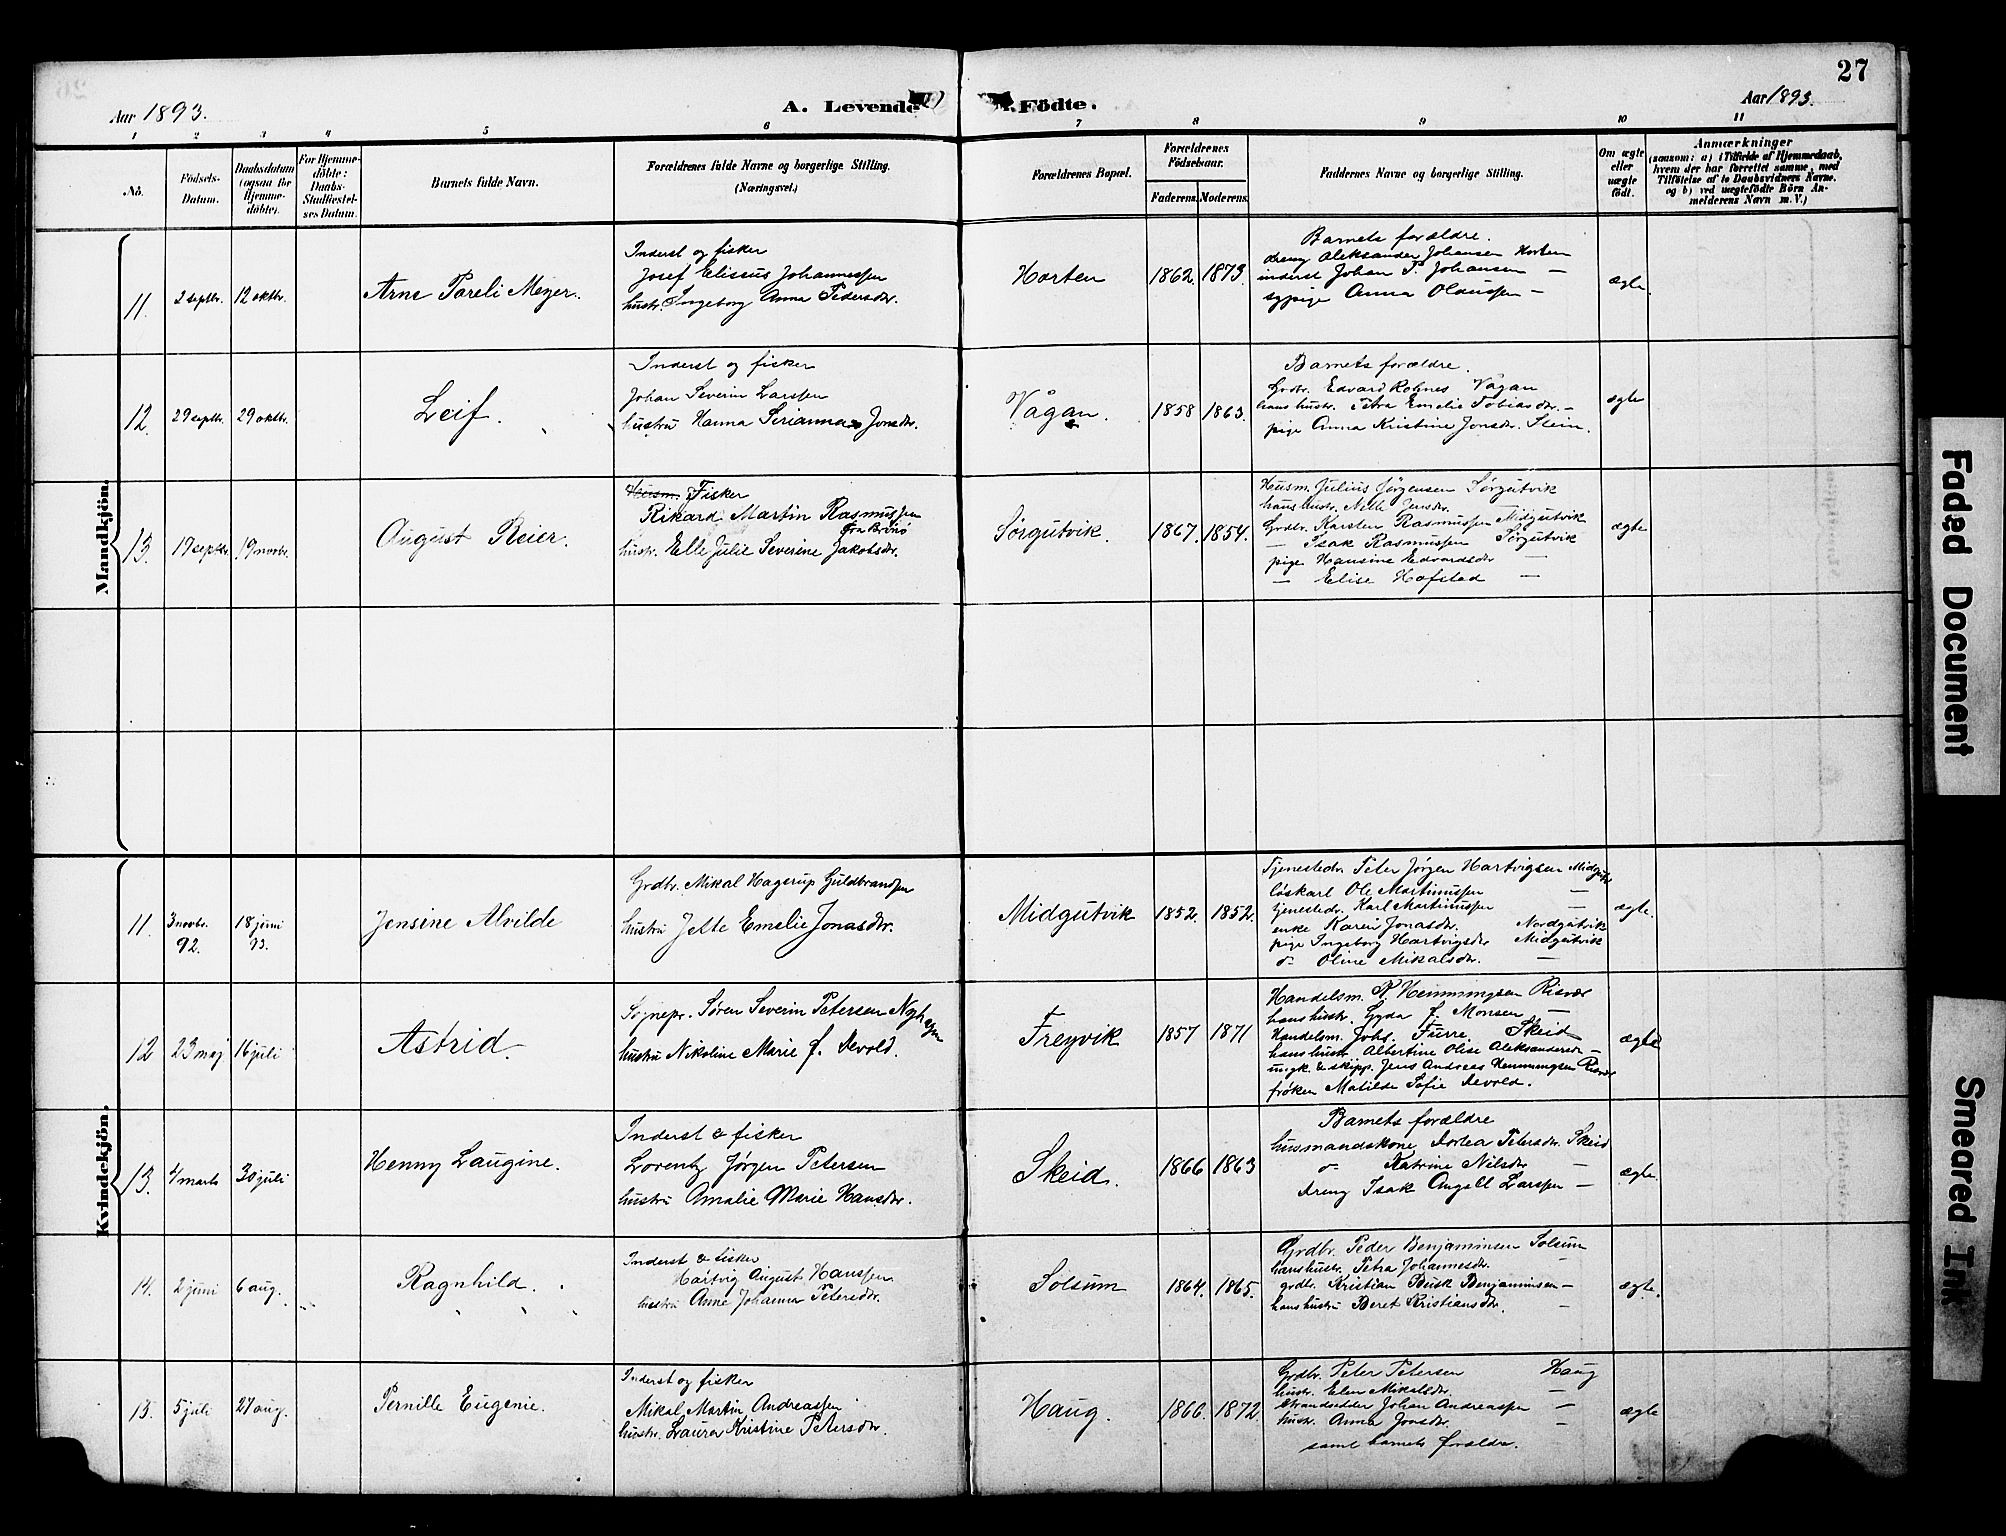 27
Aar 1893.
A. Levende Födte.
Aar 1893.
1 2 3 4 5 6 7 8 9 10 11
No.
Födsels-Datum.
Daabsdatum (ogsaa for Hjemmedöbte).
For Hjemmedöbte: Daabs-Stadfæstelses Datum.
Barnets fulde Navn.
Forældrenes fulde Navne og borgerlige Stilling.
(Næringsvei.)
Forældrenes Bopæl.
Forældrenes Födselsaar.
Faderens. Moderens.
Faddernes Navne og borgerlige Stilling.
Om ægte eller uægte födt.
Anmærkninger
(saasom: a) i Tilfælde af Hjemmedaab, hvem der har forrettet samme, med Tilföielse af to Daabsvidners Navne, og b) ved uægtefödte Börn Anmelderens Navn m. V.)
Mandkjön.
11. 2 septbr. 12 oktbr.
Arne Pareli Meyer.
Inderst og fisker
Josef Elissus Johannessen
hustr. Ingeborg Anna Pedersdr.
Horten 1862. 1873.
Barnets forældre.
dreng Aleksander Johansen Horten
inderst Johan P. Johansen —
sypige Anna Olaussen —
ægte.
12. 29 septbr. 29 oktbr.
Leif.
Inderst og fisker
Johan Severin Larssen
hustru Hanna Serianna Jonsdr.
Vågan. 1858 1863.
Barnets forældre.
Grdbr. Edvard Rohnes Vågan
hans hustr. Petra Emelie Tobiasdr. —
pige Anna Kristine Jonsdr. Stein.
ægte
13. 19 septbr. 19 novbr.
August Reier.
Husm. Fisker
Rikard Martin Rasmussen
fra Brönö
hustr. Elle Julie Severine Jakobsdr.
Sørgutvik. 1867. 1854.
Husm. Julius Jörgensen Sørgutvik
hans hustr. Nille Jensdr. —
Grdbr. Karsten Rasmussen Midgutvik
— Isak Rasmussen Sørgutvik
pige Hansine Edvardsdr —
— Elise Hofstad —
ægte
Kvindekjön.
11. 3 novbr. 92. 18 juni 93.
Jensine Alvilde
Grdbr. Mikal Hagerup Guldbrandsen
hustru Jette Emelie Jonasdr.
Midgutvik 1852. 1852.
Tjenestedr. Peter Jørgen Hartvigsen Midgutv
löskarl Ole Martinussen —
tjenestedr. Karl Martinussen —
enke Karen Jonasdr. Nordgutvik
pige Ingeborg Hartvigsdr Midgutvik
do Oline Mikalsdr. —
ægte.
12 23 maj 16 juli
Astrid.
Sognepr. Søren Severin Petersen
hustru Nikoline Marie f. Devold.
Freyvik 1857 1871
Handelsm. P. Hemmingsen Risvær
hans hustr. Gyda f. Monsen —
Handelsm. Johs. Furre. Skeid
hans hustr. Albertine Olise Aleksandersdr —
ungk. & skipp. Jens Andreas Hemmingsen Risvær
frøken Matilde Sofie Devold.
ægte
13. 4 marts 30 juli
Henny Laugine.
Inderst & fisker
Lorentz Jørgen Petersen
hustru Amalie Marie Hansdr.
Skeid. 1866 1863
Barnets forældre
husmandskone Dorlea Petersdr. Skeid
do Katrine Nilsdr —
dreng Isak Angell Larssen —
ægte.
14. 2 juni 6 aug.
Ragnhild.
Inderst & fisker
Hartvig August Hanssen
hustru Anne Johanna Petersdr.
Solsum 1864. 1865.
Grdbr. Peder Benjaminsen Solsum
hans hustr. Petra Johannesdr. —
grdbr. Kristian Beisk Benjaminsen —
hans hustru Beret Kristiansdr. —
ægte.
15. 5 juli 27 aug.
Pernille Eugenie.
Inderst og fisker
Mikal Martin Andreassen
hustr. Laura Kristine Petersdr.
Haug. 1866. 1872
Grdbr. Peter Petersen Haug
hustr. Elen Mikalsdr. —
strandsidder Johan Andreassen —
hustr. Anna Jonsdr. —
samt barnets forældre.
ægte
Faded Document
Smeared Ink